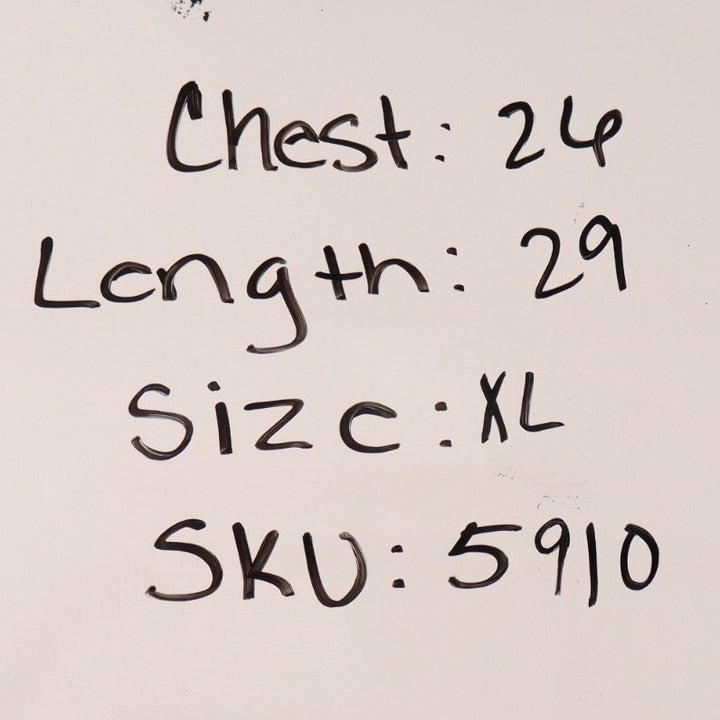 Chest: 26
Length: 29
Size: XL
SKU: 5910